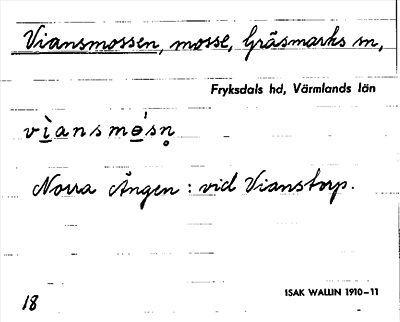 Viansmossen, mosse, Gräsmarks sn,
Fryksdals hd, Värmlands län
vìansmósn̥
Norra Ängen : vid Vianstorp.
ISAK WALLIN 1910–11
18